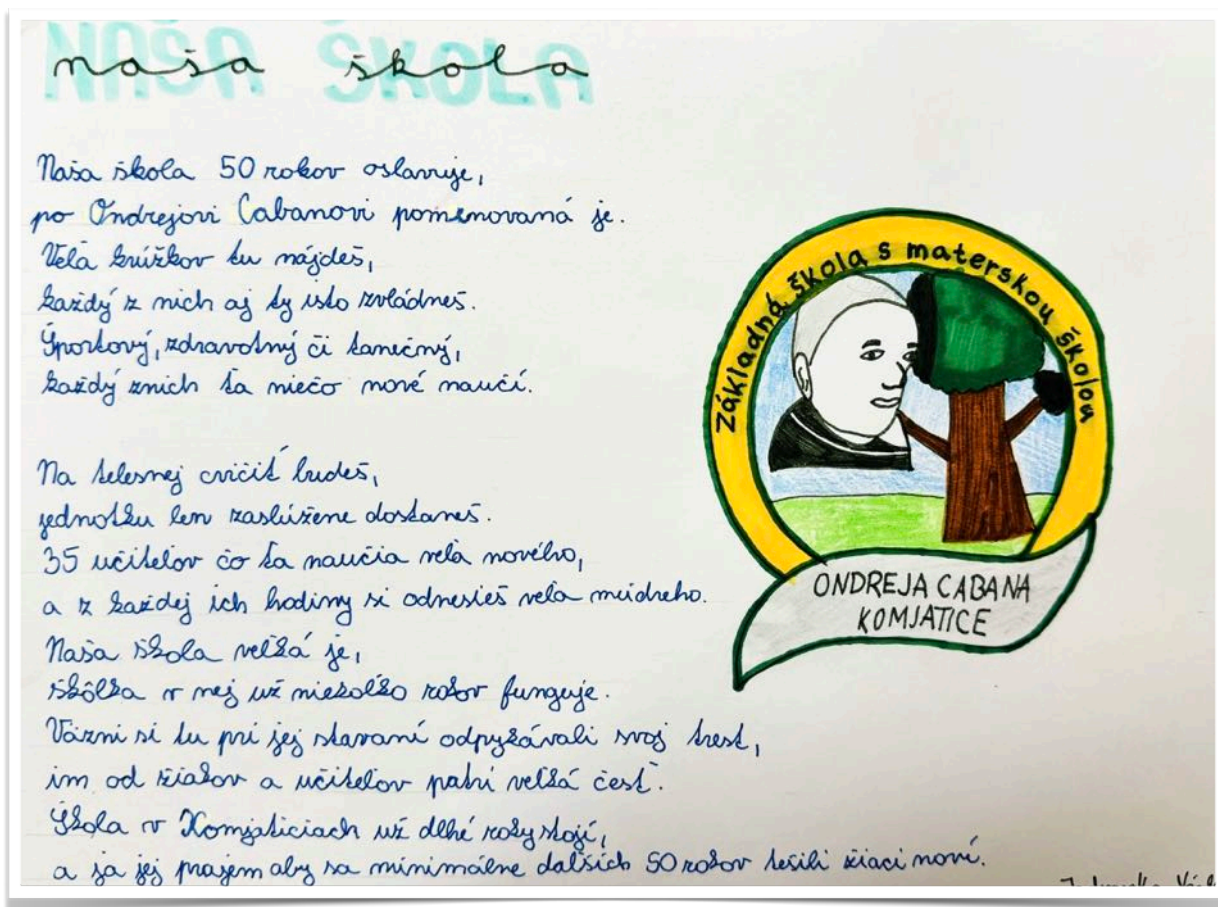 NAŠA ŠKOLA
naša škola
Naša škola 50 rokov oslavuje,
po Ondrejovi Cabanovi pomenovaná je.
Veľa krúžkov tu nájdeš,
každý z nich aj ty isto zvládneš.
Športový, zdravotný či tanečný,
každý znich ťa niečo nové naučí.
Na telesnej cvičiť budeš,
jednotku len zaslúžene dostaneš.
35 učiteľov čo ťa naučia veľa nového,
a z každej ich hodiny si odnesieš veľa múdreho.
Naša škola veľká je,
škôlka v nej už niekoľko rokov funguje.
Väzni si tu pri jej stavaní odpykávali svoj trest,
im od žiakov a učiteľov patrí veľká česť.
Škola v Komjaticiach už dlhé roky stojí,
a ja jej prajem aby sa minimálne ďalších 50 rokov tešili žiaci noví.
Základná škola s materskou školou
ONDREJA CABANA
KOMJATICE